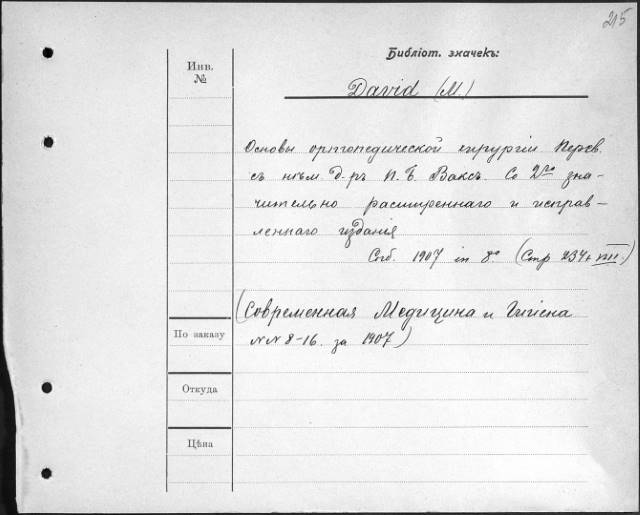 215
Библіот. значекъ:
Инв.
№
David (M.)
Основы ортопедической хирургіи Перев.
съ нѣм. д-ръ П. Б. Ваксъ. Со 2го зна-
чительно расширеннаго и исправ-
леннаго изданія
Спб. 1907 in 8° (Стр 234+VIII.)
(Современная Медицина и Гигіена
NN 8-16. за 1907)
По заказу
Откуда
Цѣна